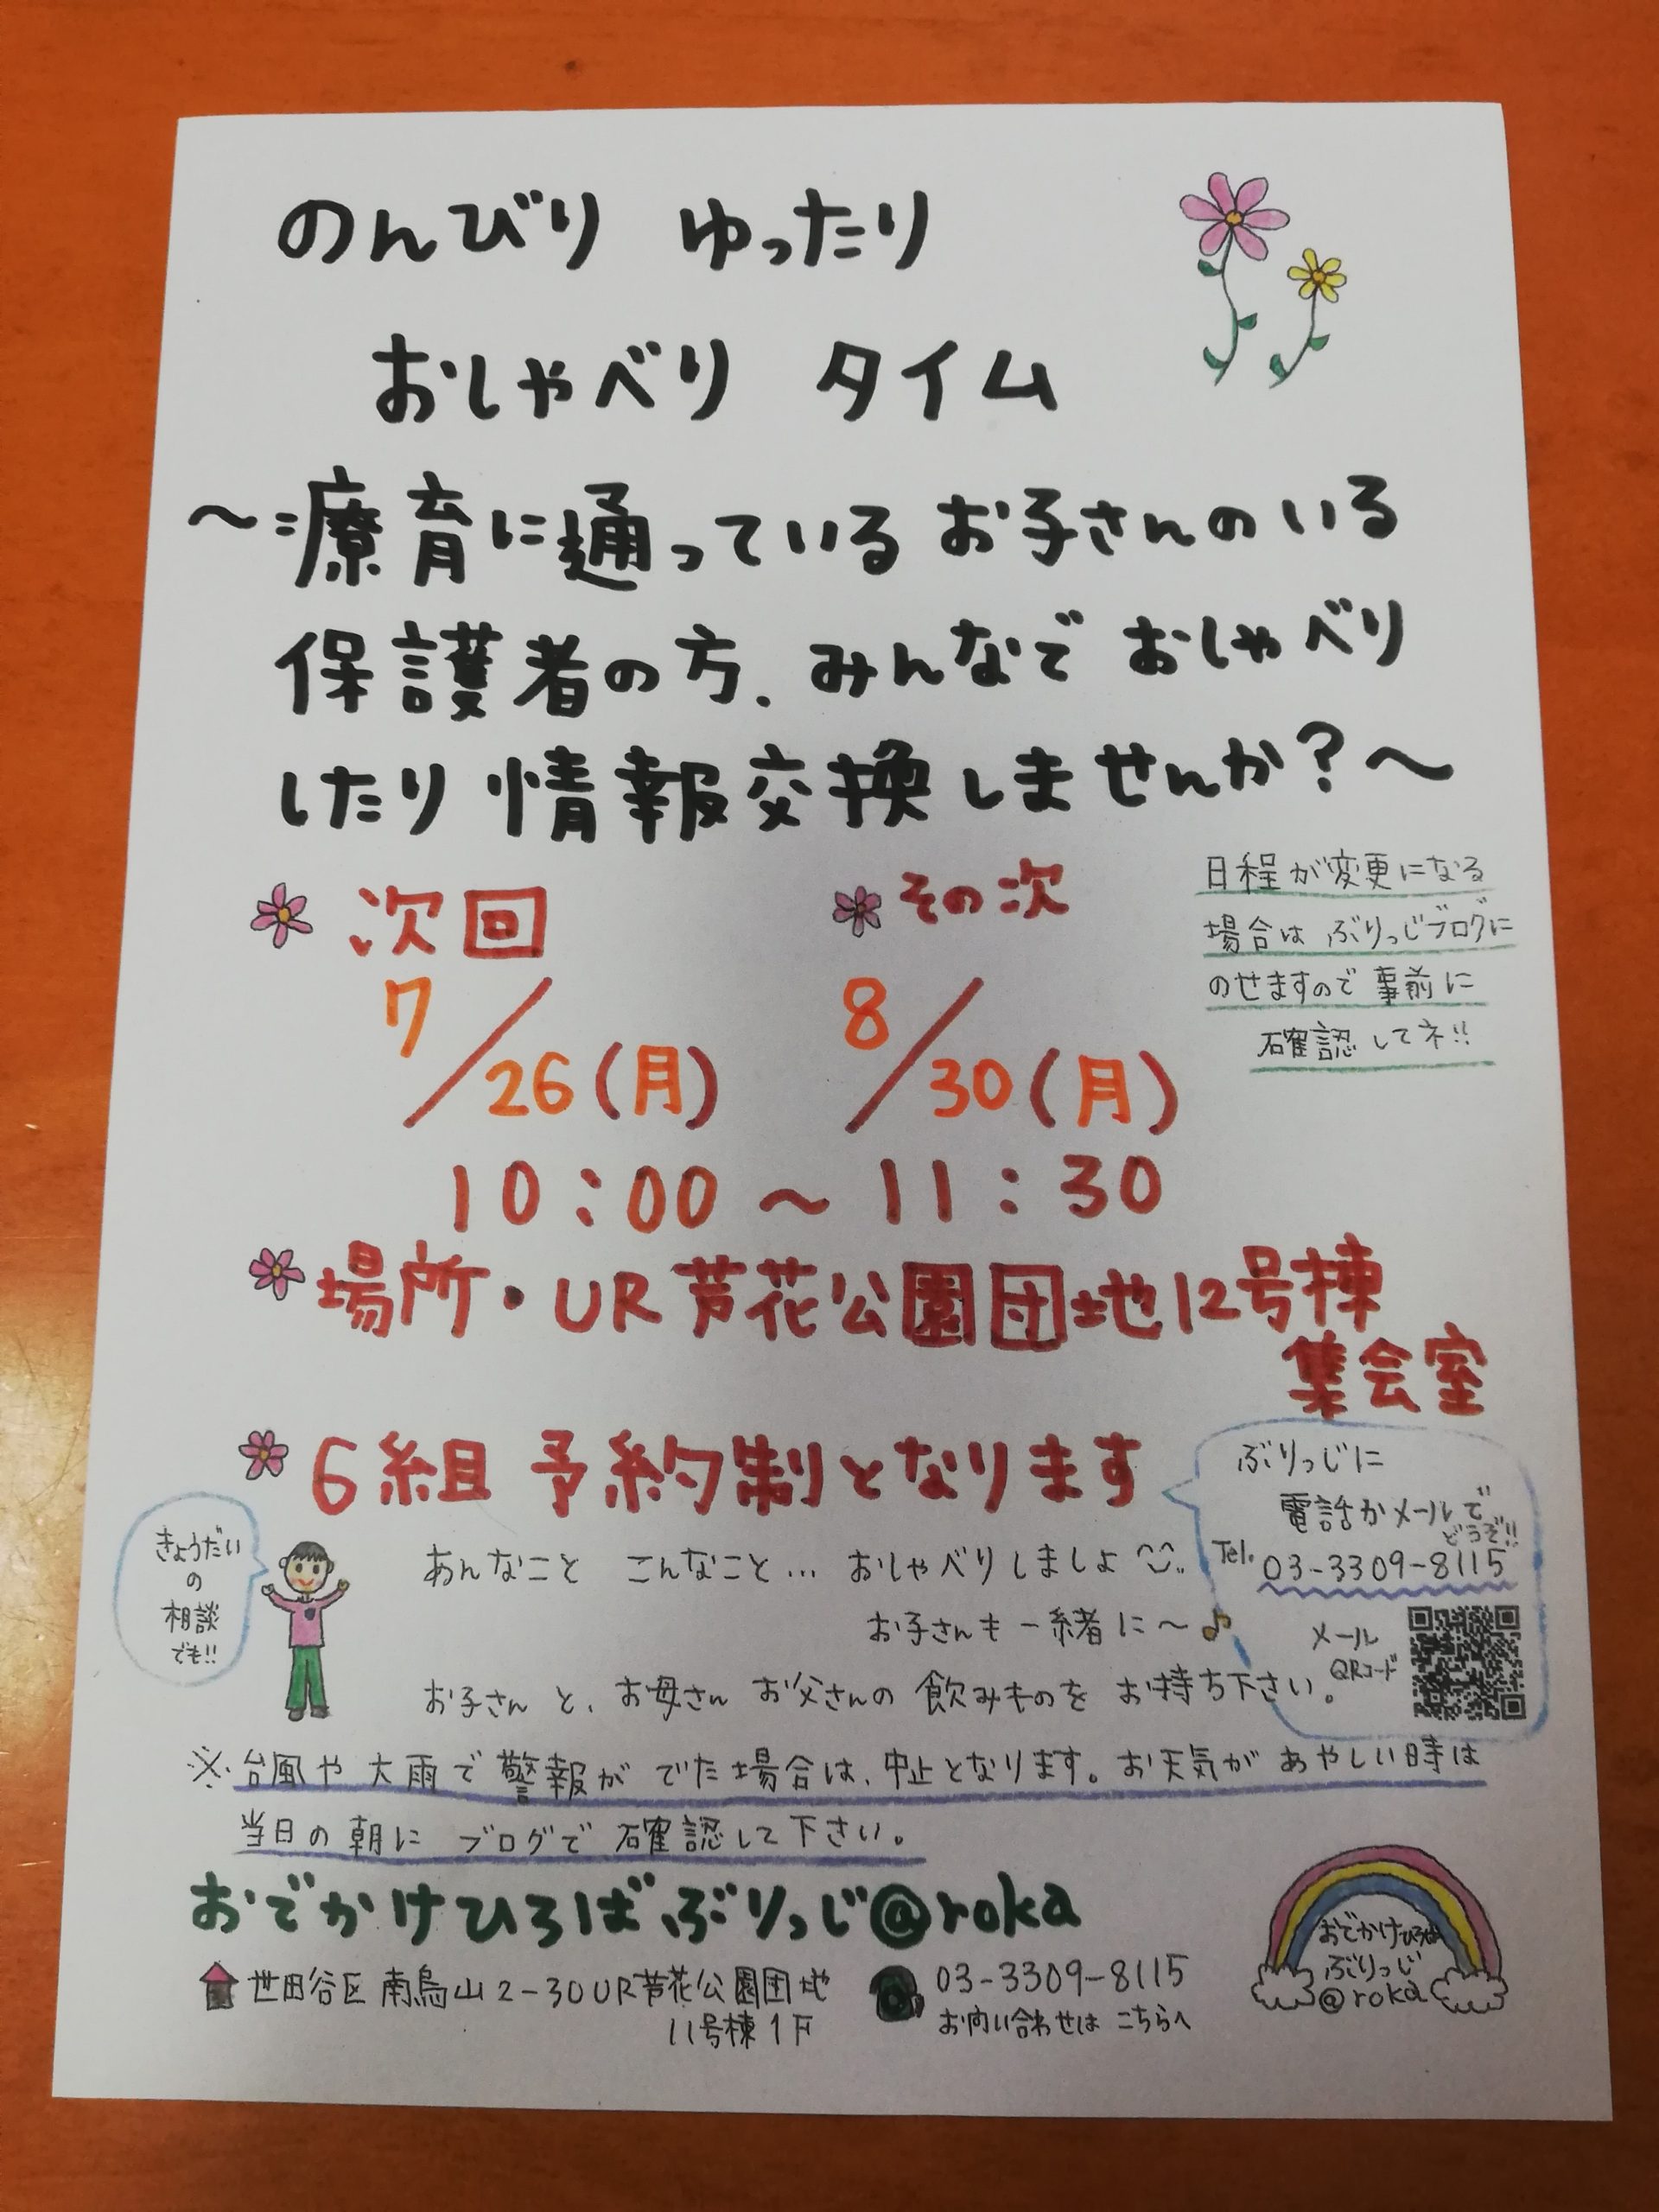 のんびり ゆったり
おしゃべり タイム
～療育に通っているお子さんのいる
保護者の方、みんなでおしゃべり
したり情報交換しませんか？～
次回
7/26(月)
その次
8/30(月)
日程が変更になる
場合は ぶりっじブログに
のせますので事前に
確認してネ!!
10:00～11:30
場所・UR芦花公園団地12号棟
集会室
6組 予約制となります
ぶりっじに
電話かメールで
どうぞ!!
Tel. 03-3309-8115
メール
QRコード
きょうだい
の
相談
でも!!
あんなこと こんなこと… おしゃべりしましょ
お子さんも一緒に～♪
お子さんと、お母さん お父さんの飲みものをお持ち下さい。
※台風や大雨で警報がでた場合は、中止となります。お天気があやしい時は
当日の朝に ブログで確認して下さい。
おでかけひろばぶりっじ@roka
世田谷区南烏山2-30UR芦花公園団地
11号棟1F
03-3309-8115
お問い合わせは こちらへ
おでかけひろば
ぶりっじ
@roka